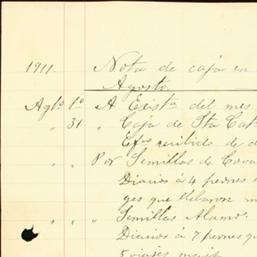 1911. Nota de caja en
Agosto.
Agto. 1º A Exista. del mes
" 31 " Caja de Sta Cat
recibido de d
" " Por Semillas de Cova
Diarios á 4 peones
ges que
" " " Semillas Alamo.
Diarios á 7 peones qu
5 viajes maiz